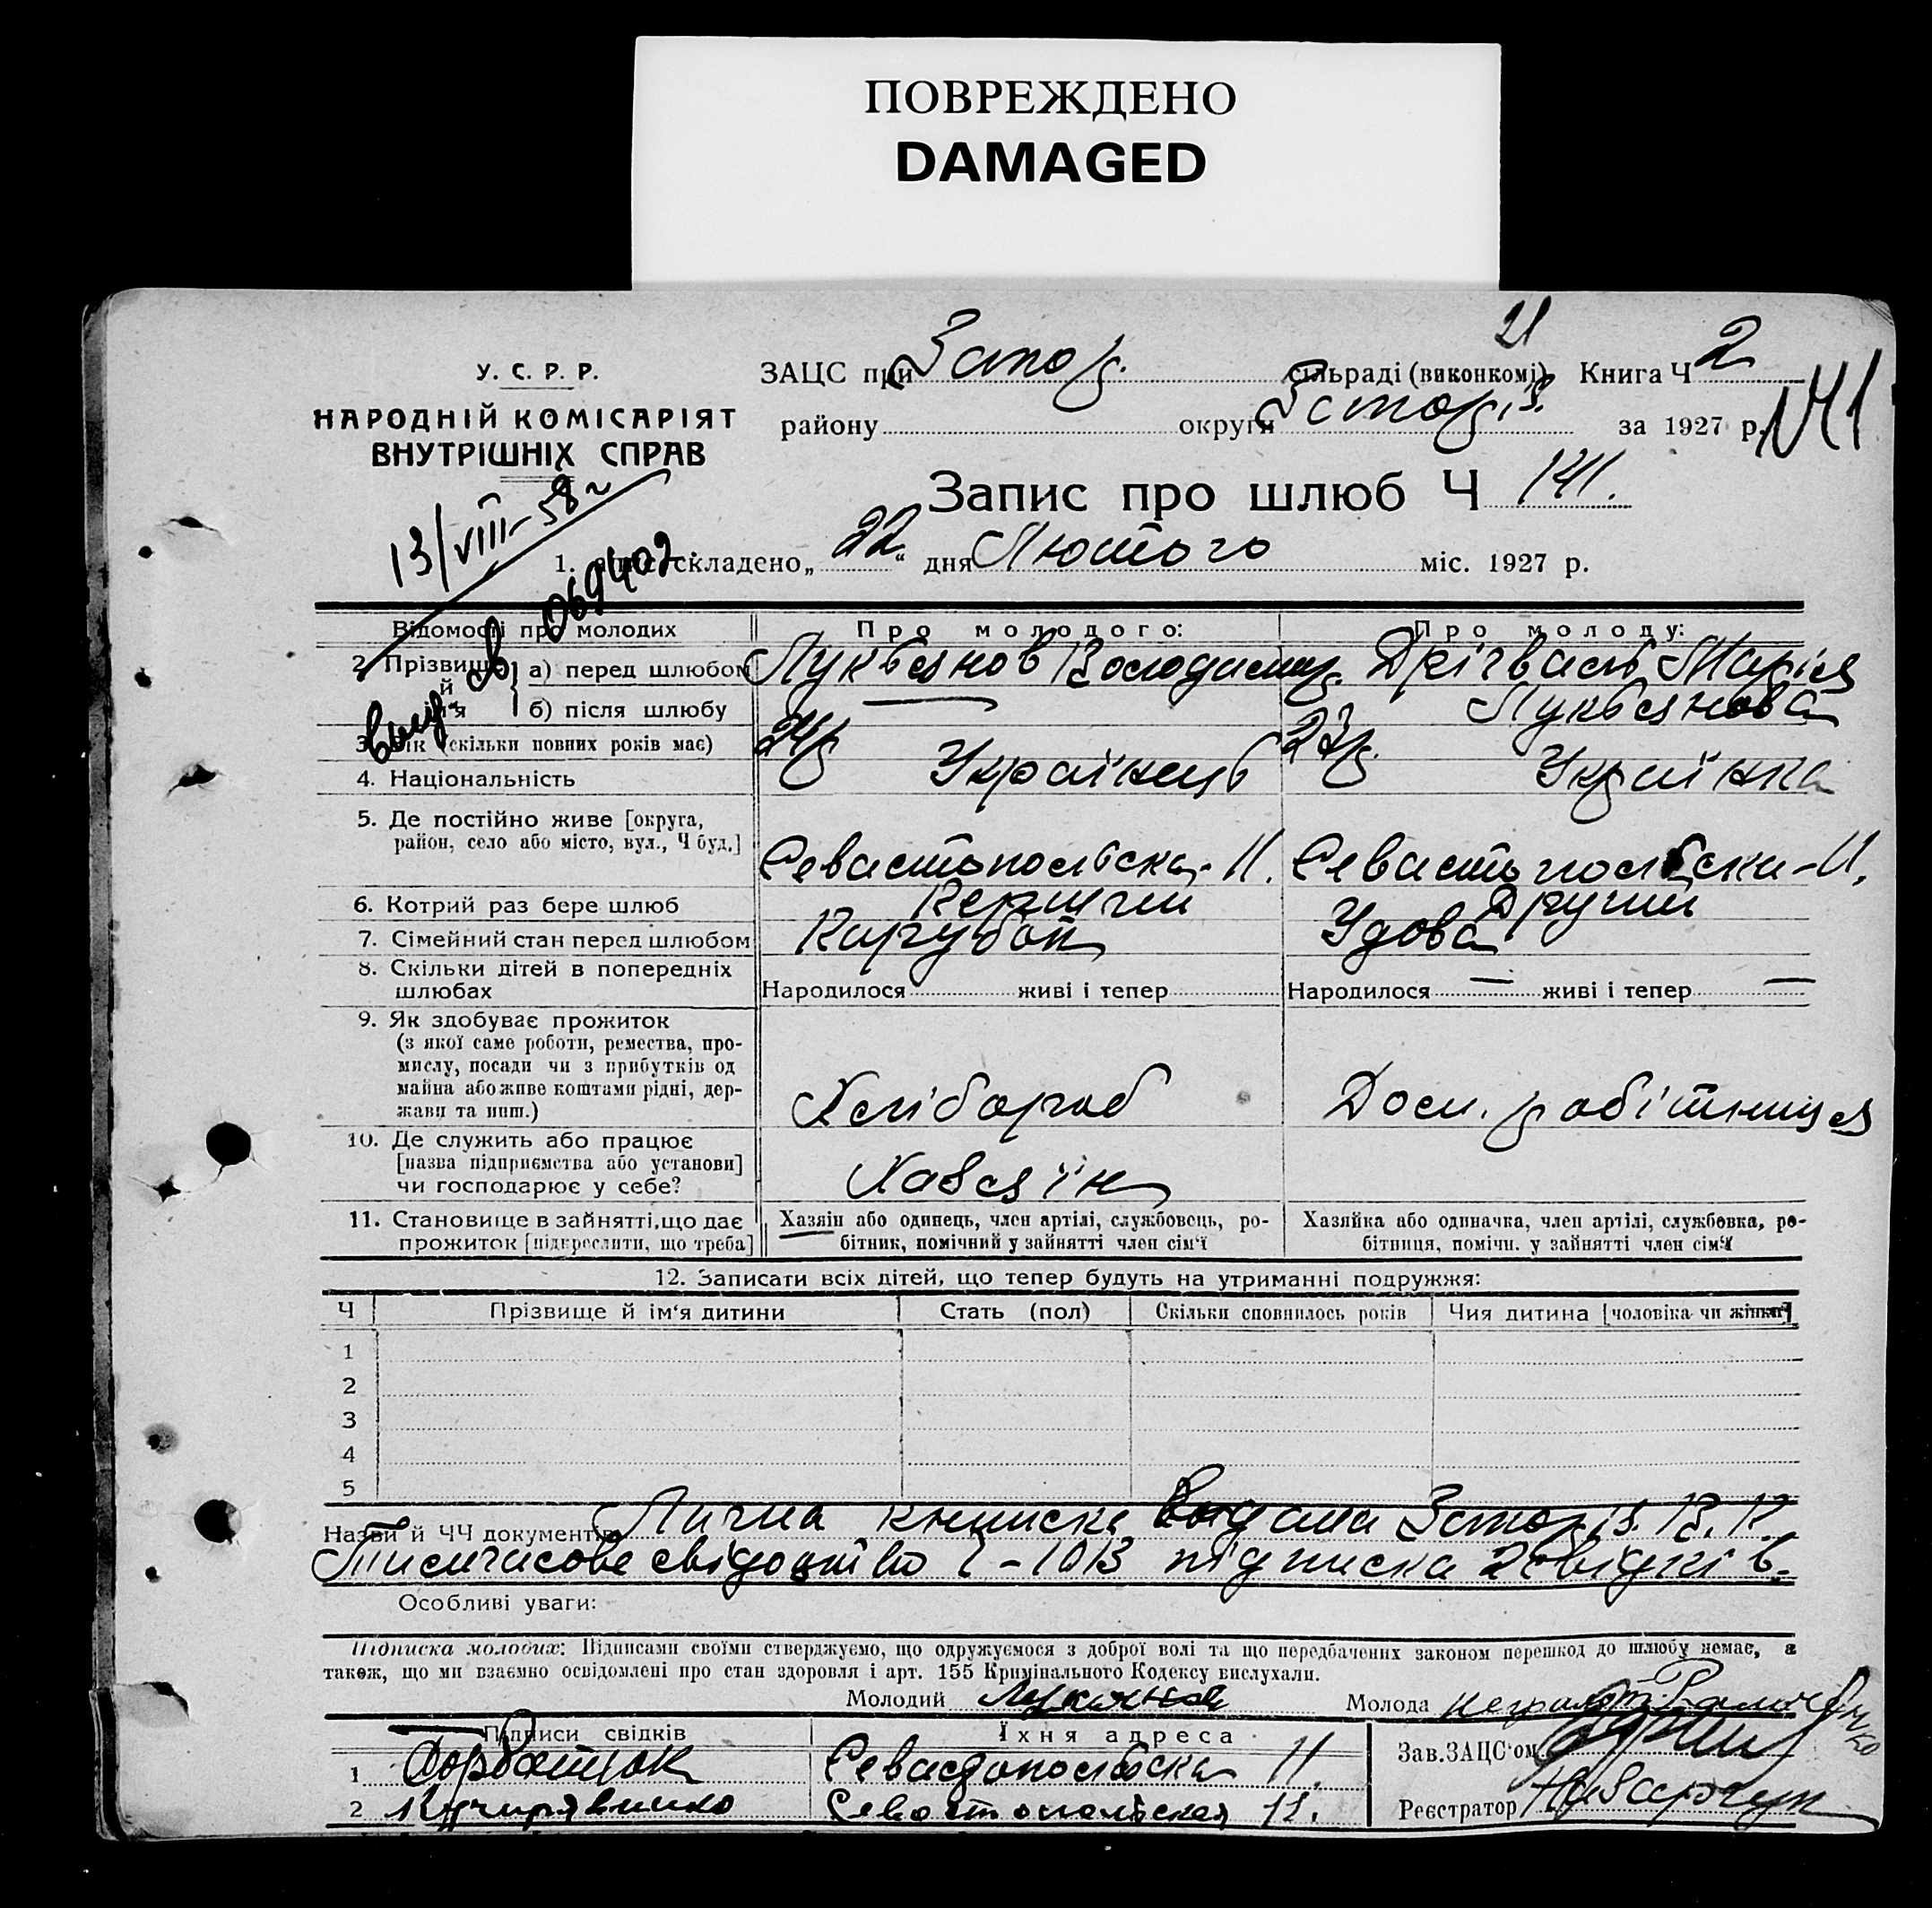 ПОВРЕЖДЕНО
DAMAGED
У. С. Р. Р.
НАРОДНІЙ КОМІСАРІЯТ
ВНУТРІШНІХ СПРАВ
21
ЗАЦС при Запор. сільраді (виконкомі) Книга Ч 2
району округи за 1927 р. 141
Запис про шлюб Ч 141.
13/VIII-58
069402
1. складено „22“ дня Лютого міс. 1927 р.
Відомості про молодих Про молодого: Про молоду:
2. Прізвище й ім'я а) перед шлюбом Лукьянов Володимир. Марія
б) після шлюбу Лукьянова
3. Вік (скільки повних років має) 24р 23р.
4. Національність Українець Українка
5. Де постійно живе [округа,
район, село або місто, вул., Ч буд.] Севастопольска-11. Севастопольска-11.
6. Котрий раз бере шлюб Перший Другий
7. Сімейний стан перед шлюбом Парубок Удова
8. Скільки дітей в попередніх
шлюбах Народилося живі і тепер Народилося — живі і тепер —
9. Як здобуває прожиток
(з якої саме роботи, ремества, про-
мислу, посади чи з прибутків од
майна або живе коштами рідні, дер-
жави та инш.) Хлібороб Дом. робітниця
10. Де служить або працює
[назва підприємства або установи]
чи господарює у себе? Хазяїн
11. Становище в зайнятті, що дає
прожиток [підкреслити, що треба]
Хазяін або одинець, член артілі, службовець, ро-
бітник, помічний у зайнятті член сім'ї
Хазяйка або одиначка, член артілі, службовка, ро-
бітниця, помічн. у зайнятті член сім'ї
12. Записати всіх дітей, що тепер будуть на утриманні подружжя:
Ч Прізвище й ім'я дитини Стать (пол) Скільки сповнилось років Чия дитина [чоловіка чи жінки]
1
2
3
4
5
Назви й ЧЧ документів Лична книжка видана
Тимчасове свідоцтво підписка 2 свідків.
Особливі уваги:
Підписка молодих: Підписами своїми стверджуємо, що одружуємося з доброї волі та що передбачених законом перешкод до шлюбу немає, а
також, що ми взаємно освідомлені про стан здоровля і арт. 155 Кримінального Кодексу вислухали.
Молодий Молода
Підписи свідків Їхня адреса Зав. ЗАЦС'ом
1 Севастопольска 11.
2 Севастопольская 11. Реєстратор